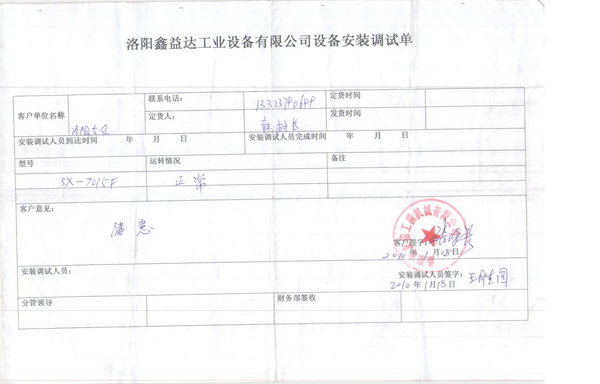 洛阳鑫益达工业设备有限公司设备安装调试单
客户单位名称
联系电话:
定货时间
定货人:
发货时间
安装调试人员到达时间 年 月 日 安装调试人员完成时间 年 月 日
型号 运转情况 备注
SX-7015F 正常
客户意见:
满意
客户签字:
2010年1月18日
安装调试人员:
安装调试人员签字:
2010年1月18日
分管领导 财务部签收